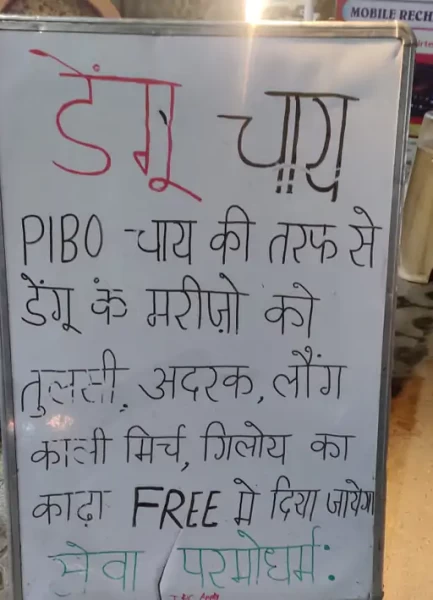 MOBILE RECH
डेंगू चाय
PIBO चाय की तरफ से
डेंगू के मरीज़ो को
तुलसी, अदरक, लौंग
काली मिर्च, गिलोय का
काढ़ा FREE मे दिया जायेगा
सेवा परमोधर्म: